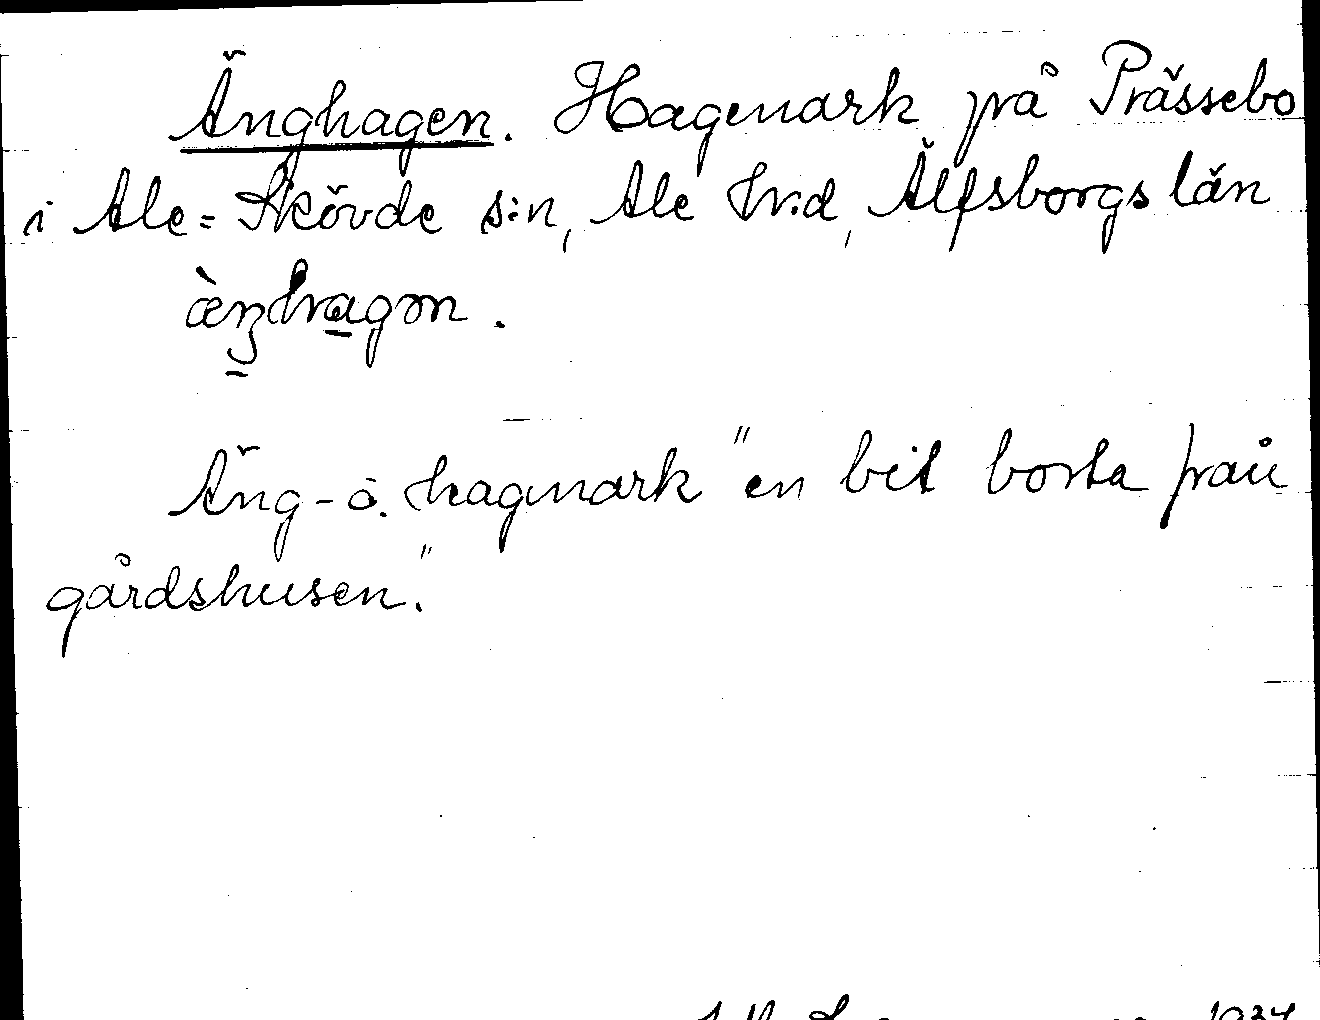 Änghagen. Hagmark på Prässebo
i Ale=Skövde s:n, Ale hr:d, Älfsborgs län
Äng- o. hagmark "en bit borta från
gårdshusen."